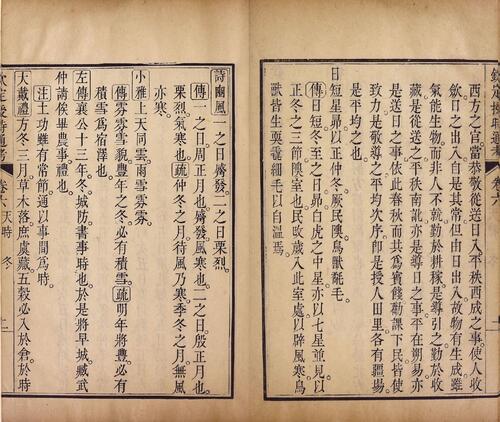 欽定授時通考 卷六
西方之官當恭敬從送日入平秩西成之事。使人收
斂日之出入自是其常。但由日出入。故物有生成。雖
氣能生物。而非人不就。勤於耕稼。是導引之。勤於收
藏。是從送之。平秩南訛。亦是導日之事。平在朔易。亦
是送日之事。依此春秋而共為賓餞。勸課下民。皆使
致力。是敬導之。平均次序。即是授人田里。各有疆場。
是平均之也。
日短星昴。以正仲冬。厥民隩。鳥獸氄毛。
傳日短。冬至之日。昴白虎之中星。亦以七星並見。以
正冬之三節。隩。室也。民改歲入此室處。以辟風寒。鳥
獸皆生耎毳細毛以自溫焉。
詩豳風一之日觱發。二之日栗烈。
傳一之日。周正月也。觱發。風寒也。二之日。殷正月也。
栗烈。氣寒也。疏仲冬之月。待風乃寒。季冬之月。無風
亦寒。
小雅上天同雲。雨雪雰雰。
傳雰雰。雪貌。豐年之冬。必有積雪。疏明年將豐。必有
積雪為宿澤也。
左傳襄公十三年。冬。城防。書事時也。於是將早城。臧武
仲請俟畢農事。禮也。
注土功雖有常節。通以事間為時。
大戴禮方冬三月。草木落。庶虞藏。五穀必入於倉。於時
欽定授時通考 卷六 天時 冬 十一